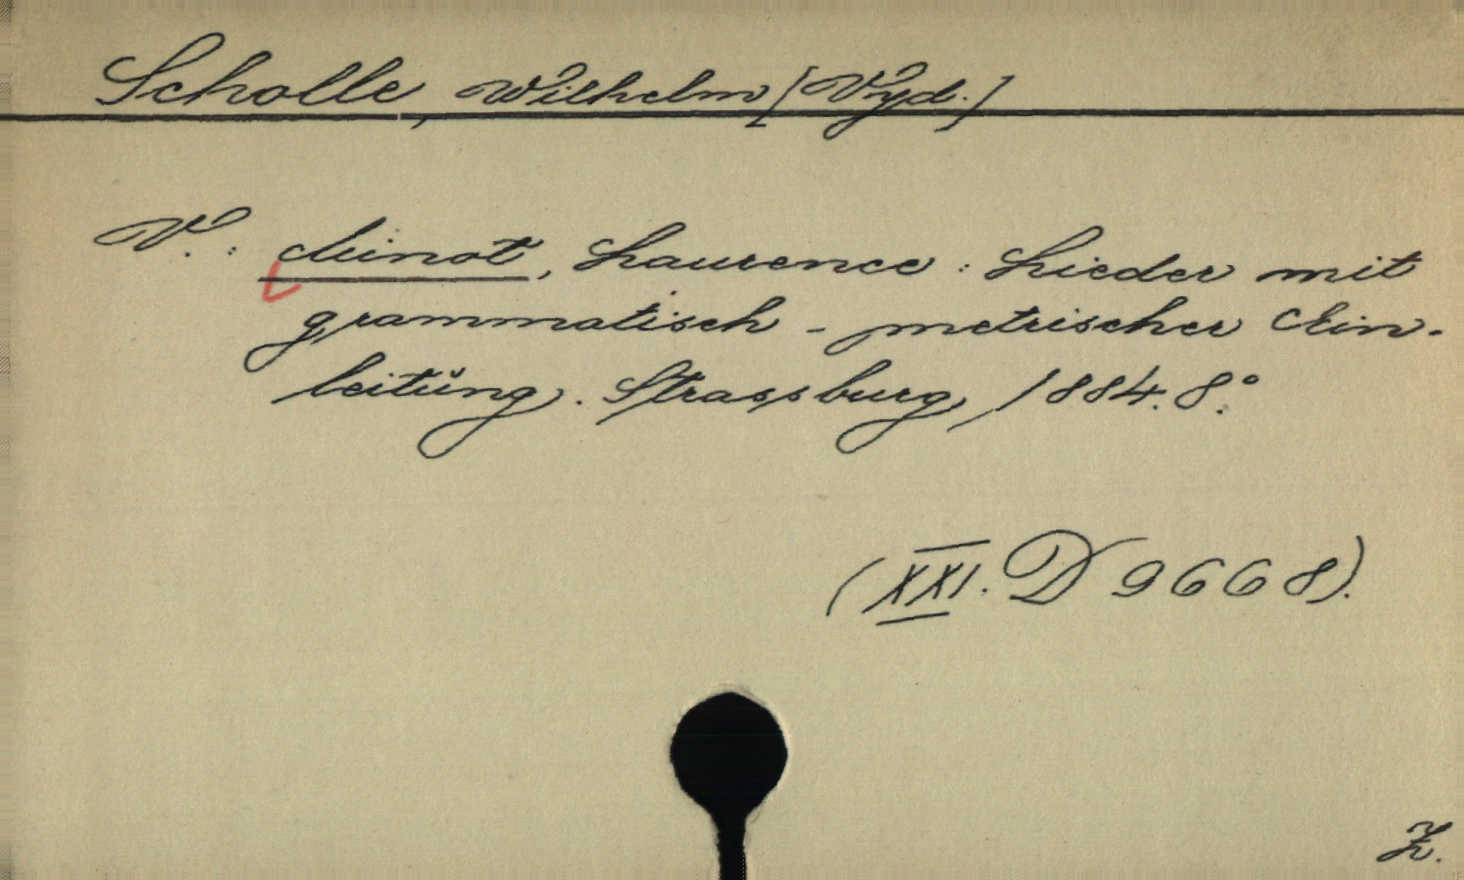 Scholle, Wilhelm [Vyd.]
V.: Minot, Laurence: Lieder mit
grammatisch-metrischer Ein-
leitung. Strassburg, 1884. 8°.
(XXI. D 9668).
Z.